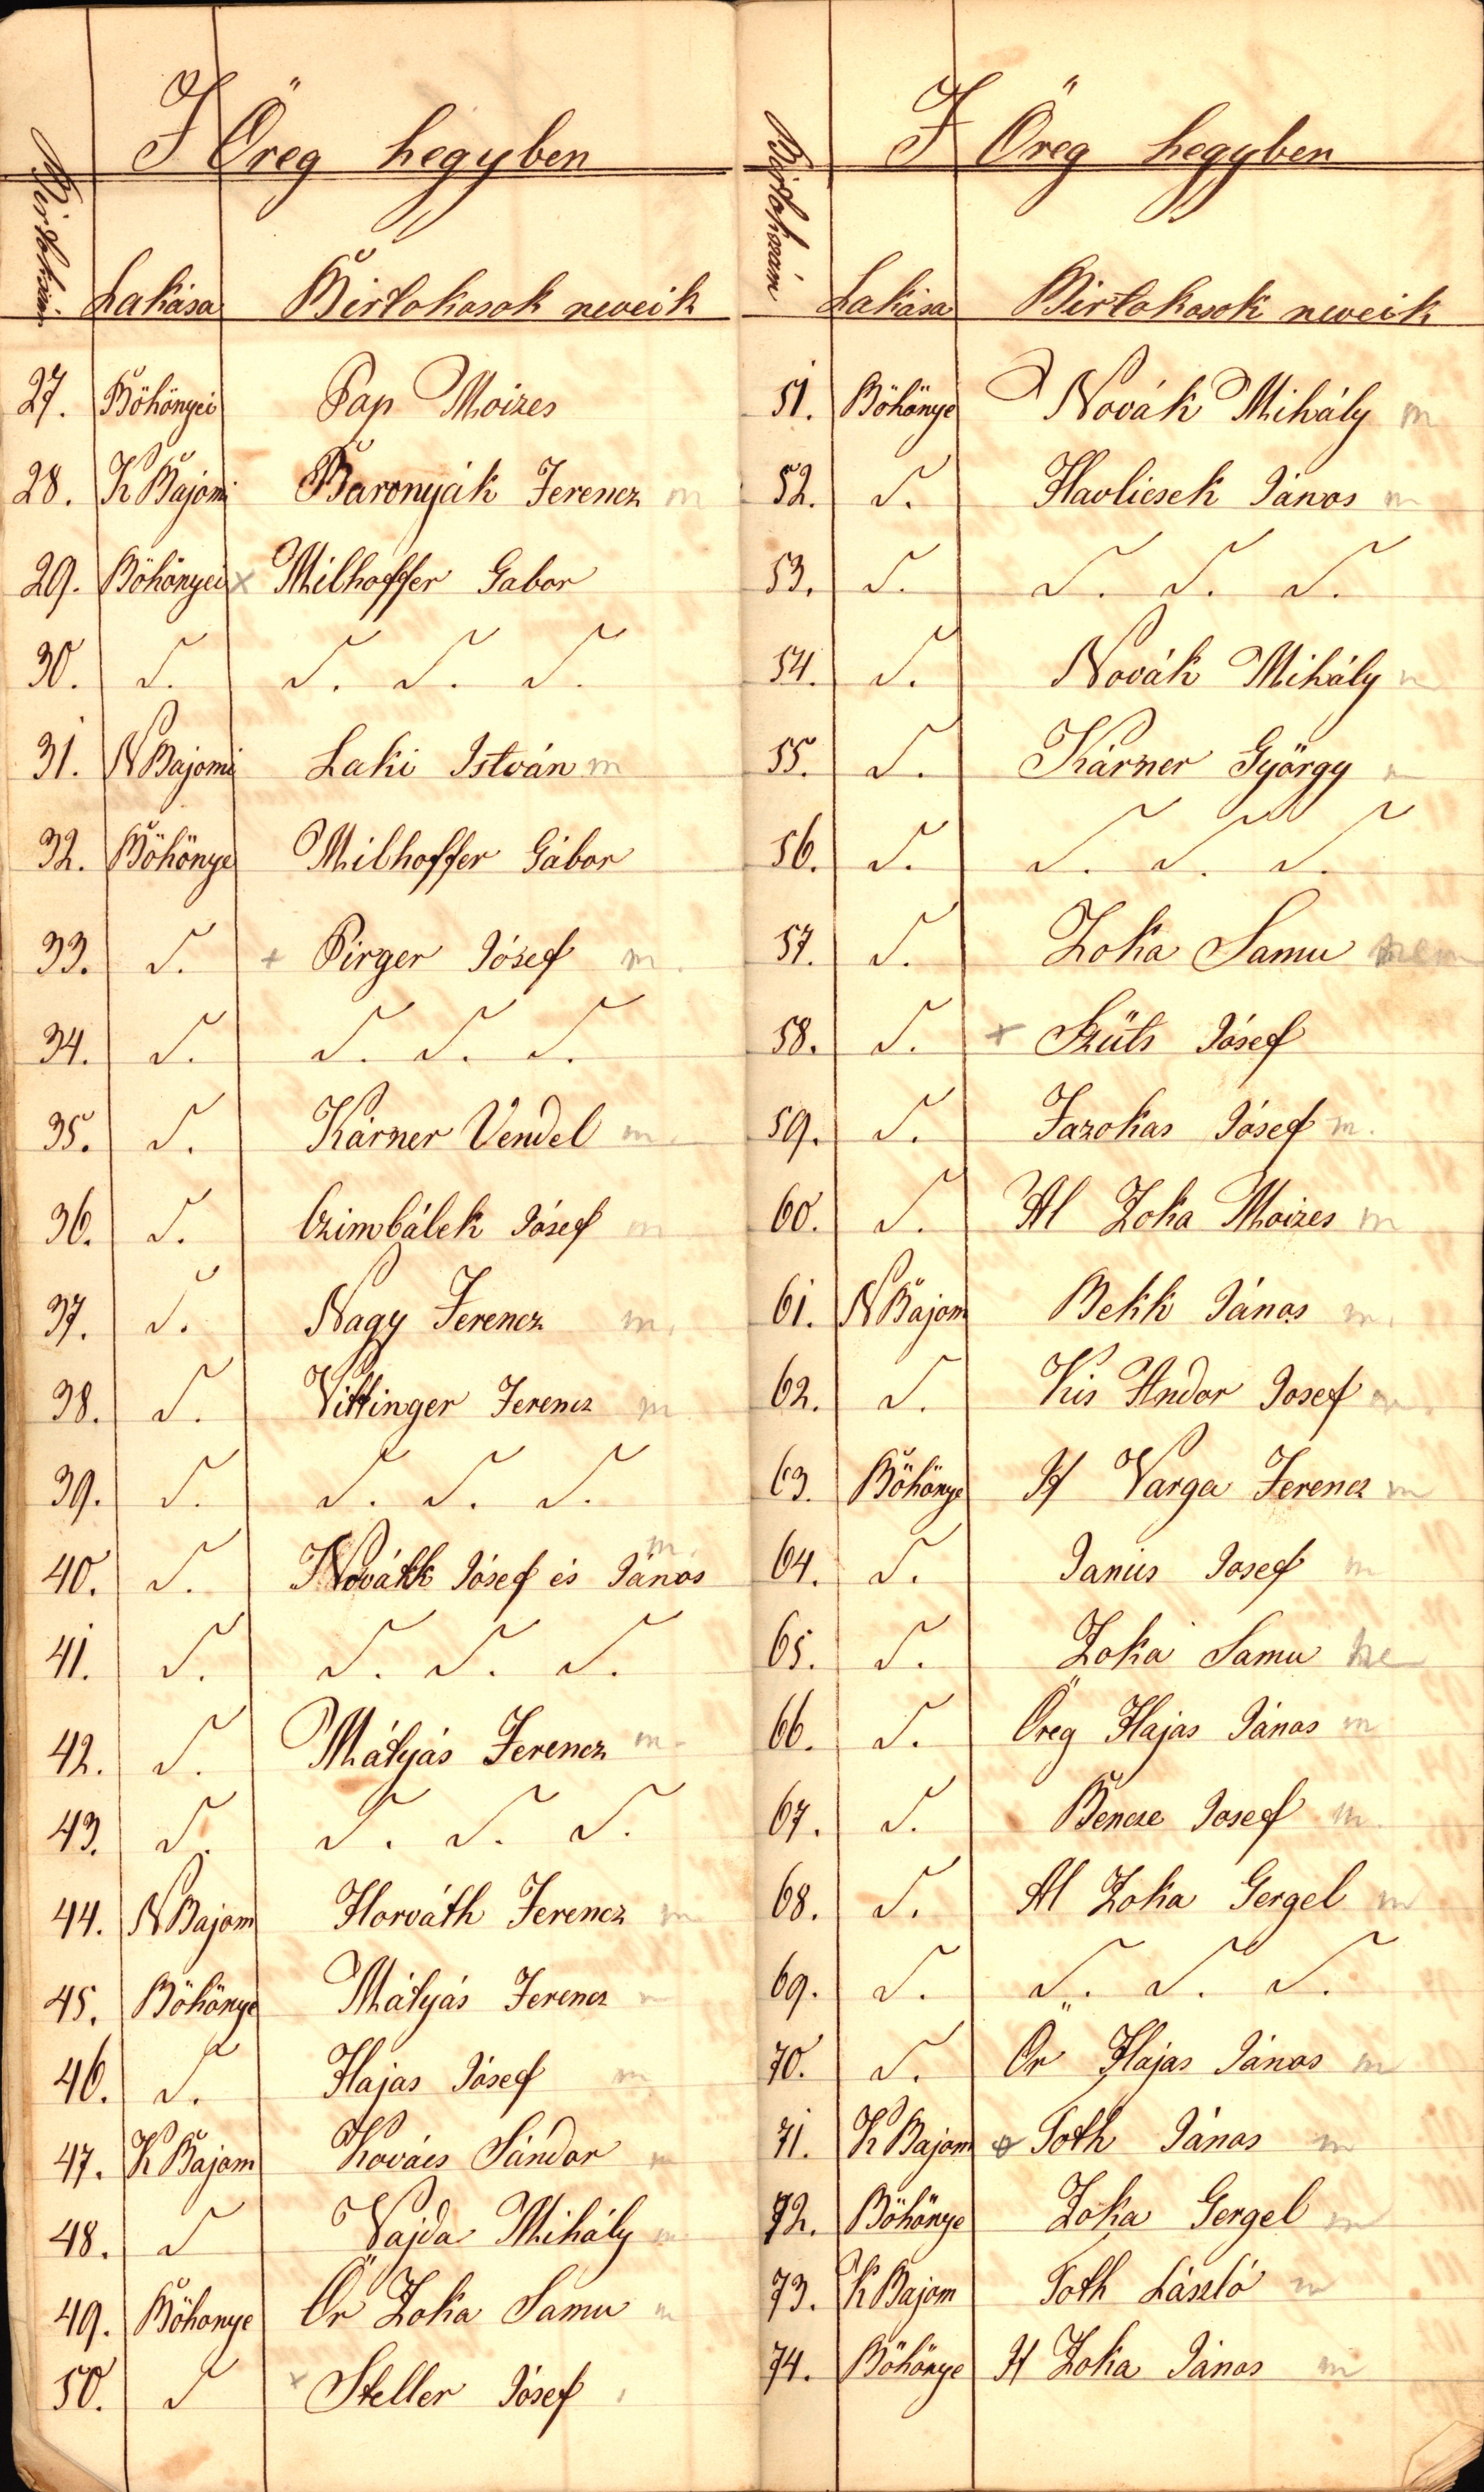 I Öreg hegyben
Birtokszám Lakása Birtokosok neveik
27. Böhönyei Pap Moizes
28. K Bajomi Baronyák Ferencz m
29. Böhönyei x Milhoffer Gabor
30. S. S. S. S.
31. N Bajomi Laki István m
32. Böhönye Milhoffer Gábor
33. S. + Pirger Jósef m.
34. S. S. S. S.
35. S. Kárner Vendel m.
36. S. Czimbálek Jósef m
37. S. Nagy Ferencz m.
38. S. Vittinger Ferencz m.
39. S. S. S. S.
40. S. Novákk Jósef és János m.
41. S. S. S. S.
42. S. Mátyás Ferencz m.
43. S. S. S. S.
44. N Bajom Horváth Ferencz m
45. Böhönye Mátyás Ferencz m
46. S. Hajas Jósef m
47. K Bajom Kovács Sándor m
48. S Vajda Mihály m
49. Böhonye Ör Zoka Samu m
50. S x Steller Jósef
I Öreg hegyben
Birtokszám Lakása Birtokosok neveik
51. Böhönye Novák Mihály m
52. S. Havlicsek János m
53. S. S. S. S.
54. S. Novák Mihály m
55. S. Kárner György m
56. S. S. S. S.
57. S. Zoka Samu nem
58. S. + Szüts Jósef
59. S. Fazokas Jósef m.
60. S. Al Zoka Moizes m
61. N Bajom Bekk János m.
62. S. Kis Andor Josef m
63. Böhönye If Varga Ferencz m
64. S. Janus Josef m
65. S. Zoka Samu ne
66. S. Öreg Hajas János m
67. S. Bencze Josef m.
68. S. Al Zoka Gergel m
69. S. S. S. S.
70. S. Ör Hajas János m
71. K Bajom + Toth János m
72. Böhönye Zoka Gergel m
73. K Bajom Toth László m
74. Böhönye If Zoka János m